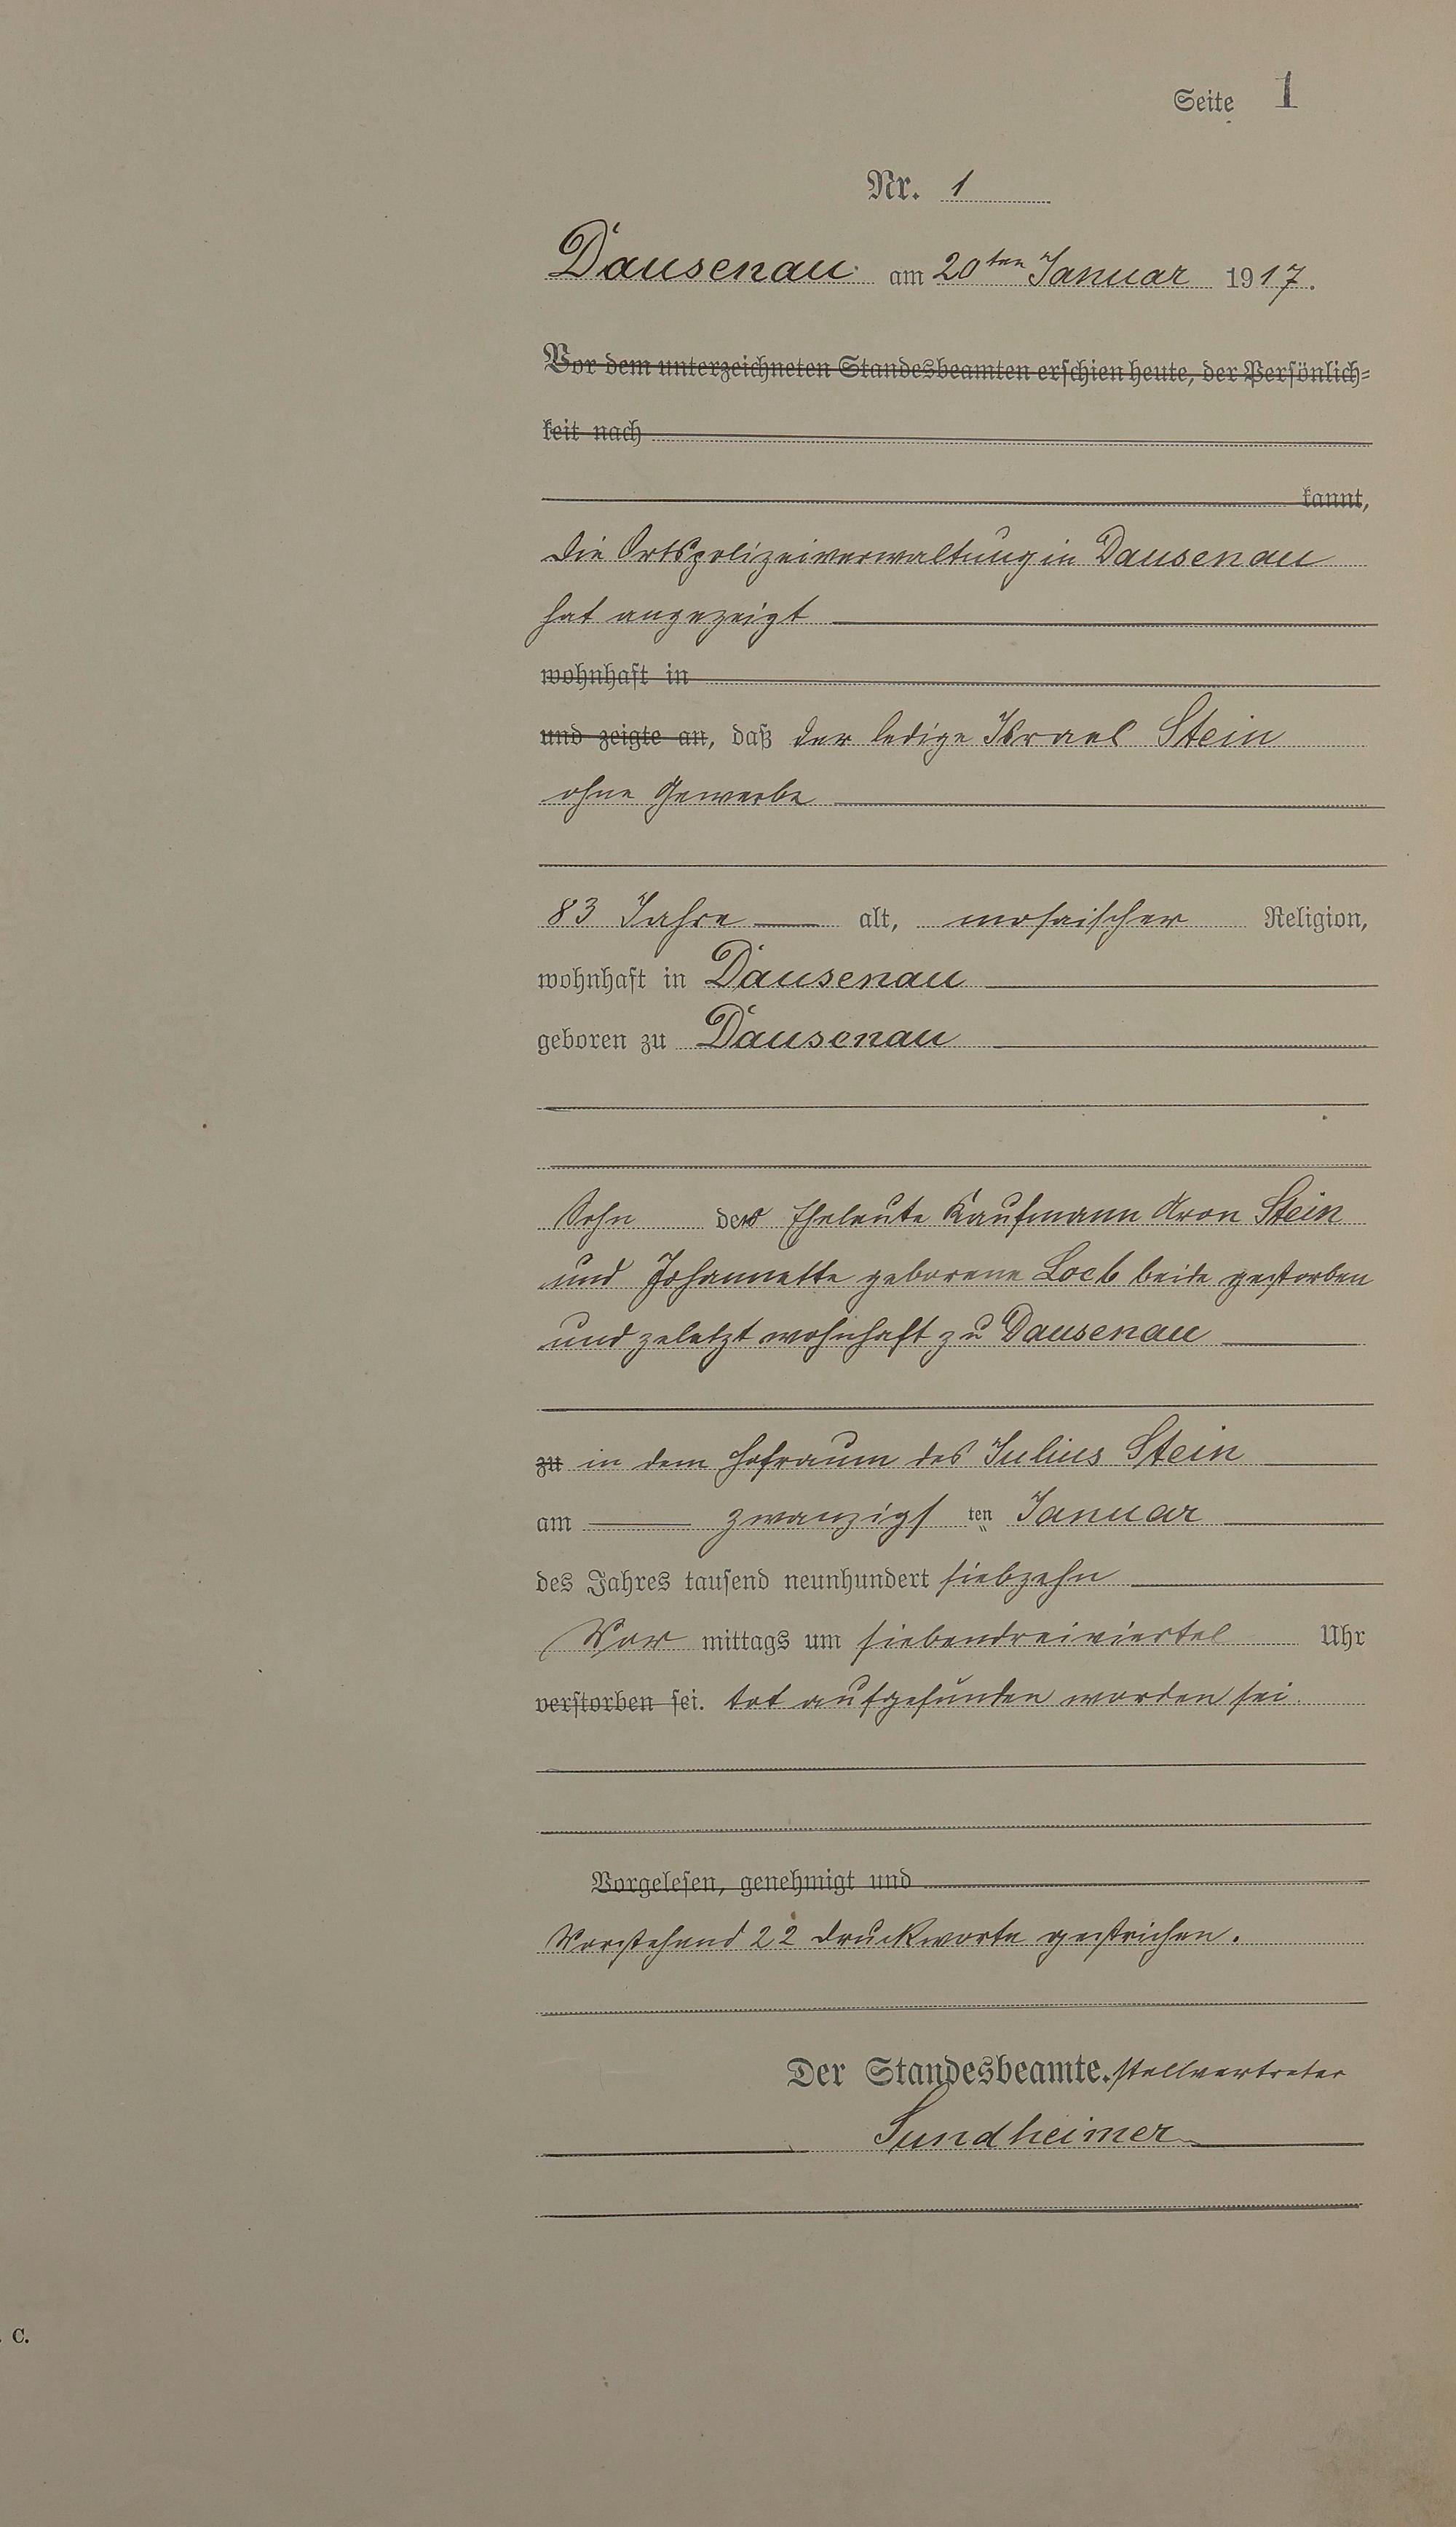 Seite 1
Nr. 1
Dausenau am 20ten Januar 1917.
Vor dem unterzeichneten Standesbeamten erschien heute, der Persönlich-
keit nach
kannt,
Die Ortspolizeiverwaltung in Dausenau
hat angezeigt
wohnhaft in
und zeigte an, daß der ledige Israel Stein
ohne Gewerbe
83 Jahre alt, mosaischer Religion,
wohnhaft in Dausenau
geboren zu Dausenau
Sohn der Eheleute Kaufmann Aron Stein
und Johannette geborene Loeb beide gestorben
und zuletzt wohnhaft zu Dausenau
zu in dem Hofraum des Julius Stein
am zwanzigsten Januar
des Jahres tausend neunhundert siebzehn
Vor mittags um siebendreiviertel Uhr
verstorben sei. tot aufgefunden worden sei.
Vorgelesen, genehmigt und
Vorstehend 22 Druckworte gestrichen.
Der Standesbeamte. Stellvertreter
Sundheimer
C.